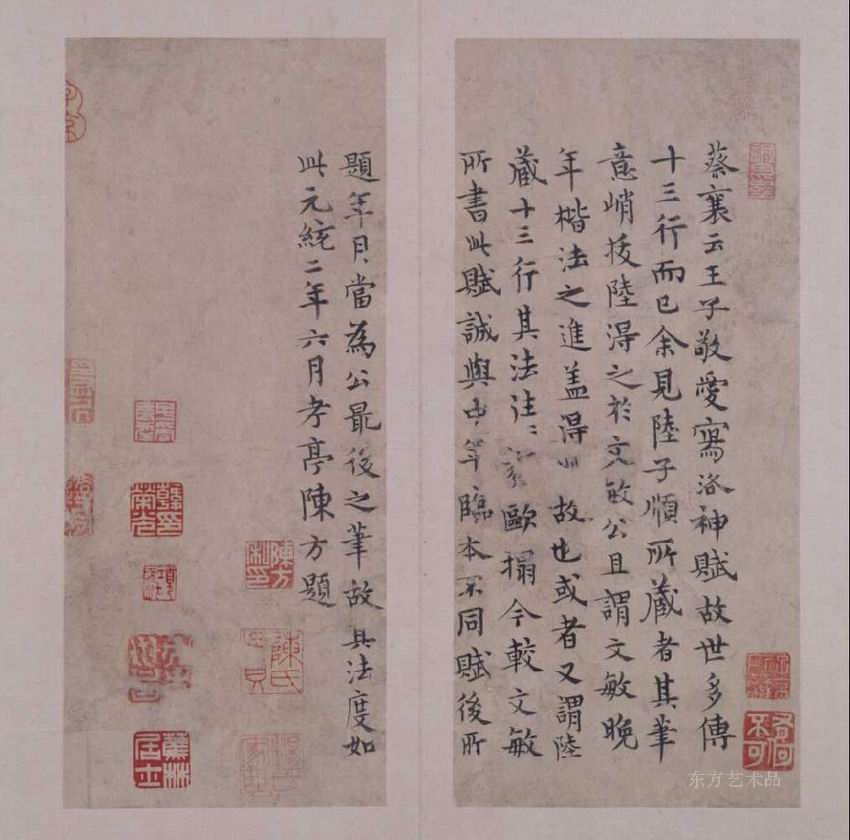 蔡襄云王子敬愛寫洛神賦故世多傳
十三行而已余見陸子順所藏者其筆
意峭拔陸得之於文敏公且謂文敏晚
年楷法之進蓋得此故也或者又謂陸
藏十三行其法注〻歐搨今較文敏
所書此賦誠與中年臨本不同賦後所
題年月當為公最後之筆故其法度如
此元統二年六月孝亭陳方題
陳方
陳氏
蕉林居士
东方艺术品